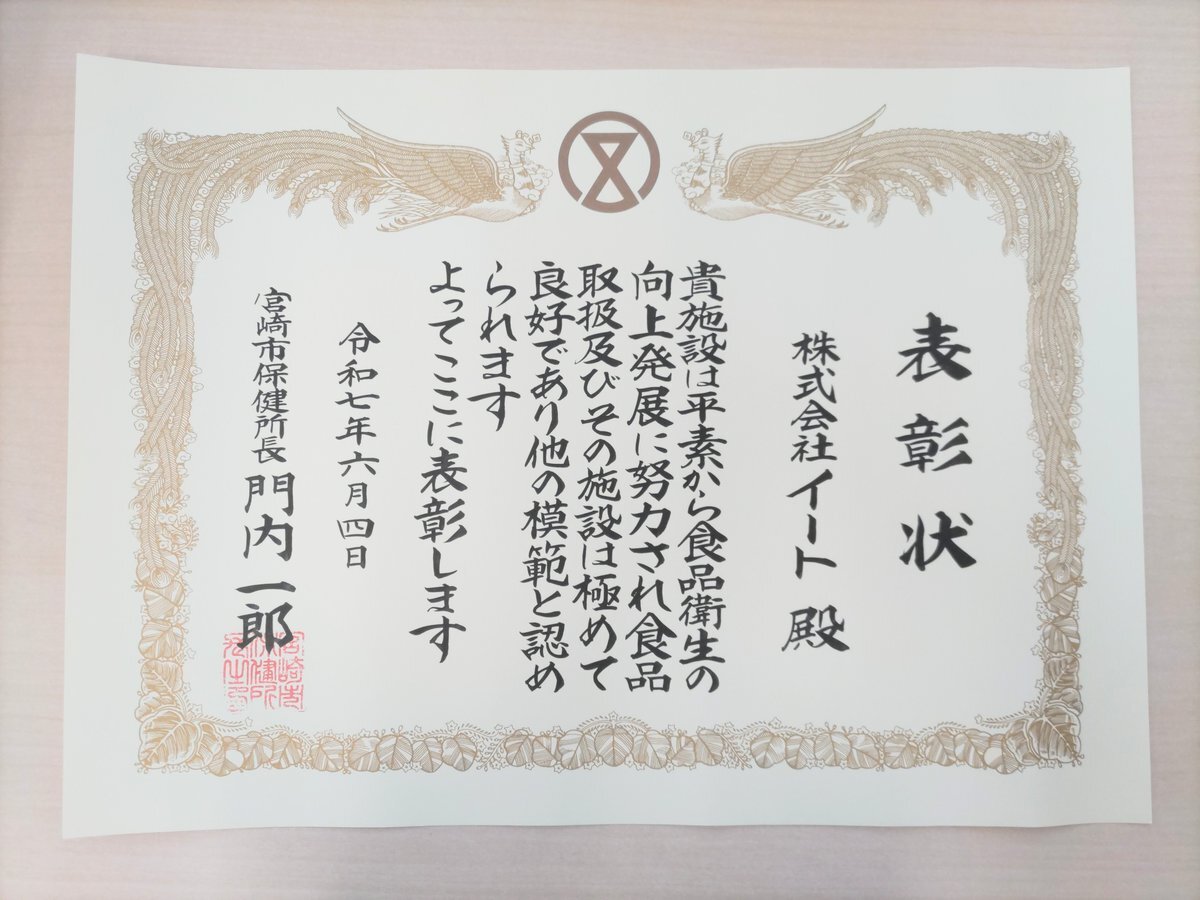 表彰状
株式会社イート 殿
貴施設は平素から食品衛生の
向上発展に努力され食品
取扱及びその施設は極めて
良好であり他の模範と認め
られます
よってここに表彰します
令和七年六月四日
宮崎市保健所長 門内一郎